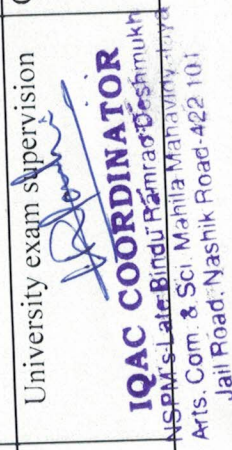 University exam supervision
IQAC COORDINATOR
NSPM's Late Bindu Ramrao Deshmukh
Arts, Com. & Sci. Mahila Mahavidyalaya
Jail Road, Nashik Road-422 101